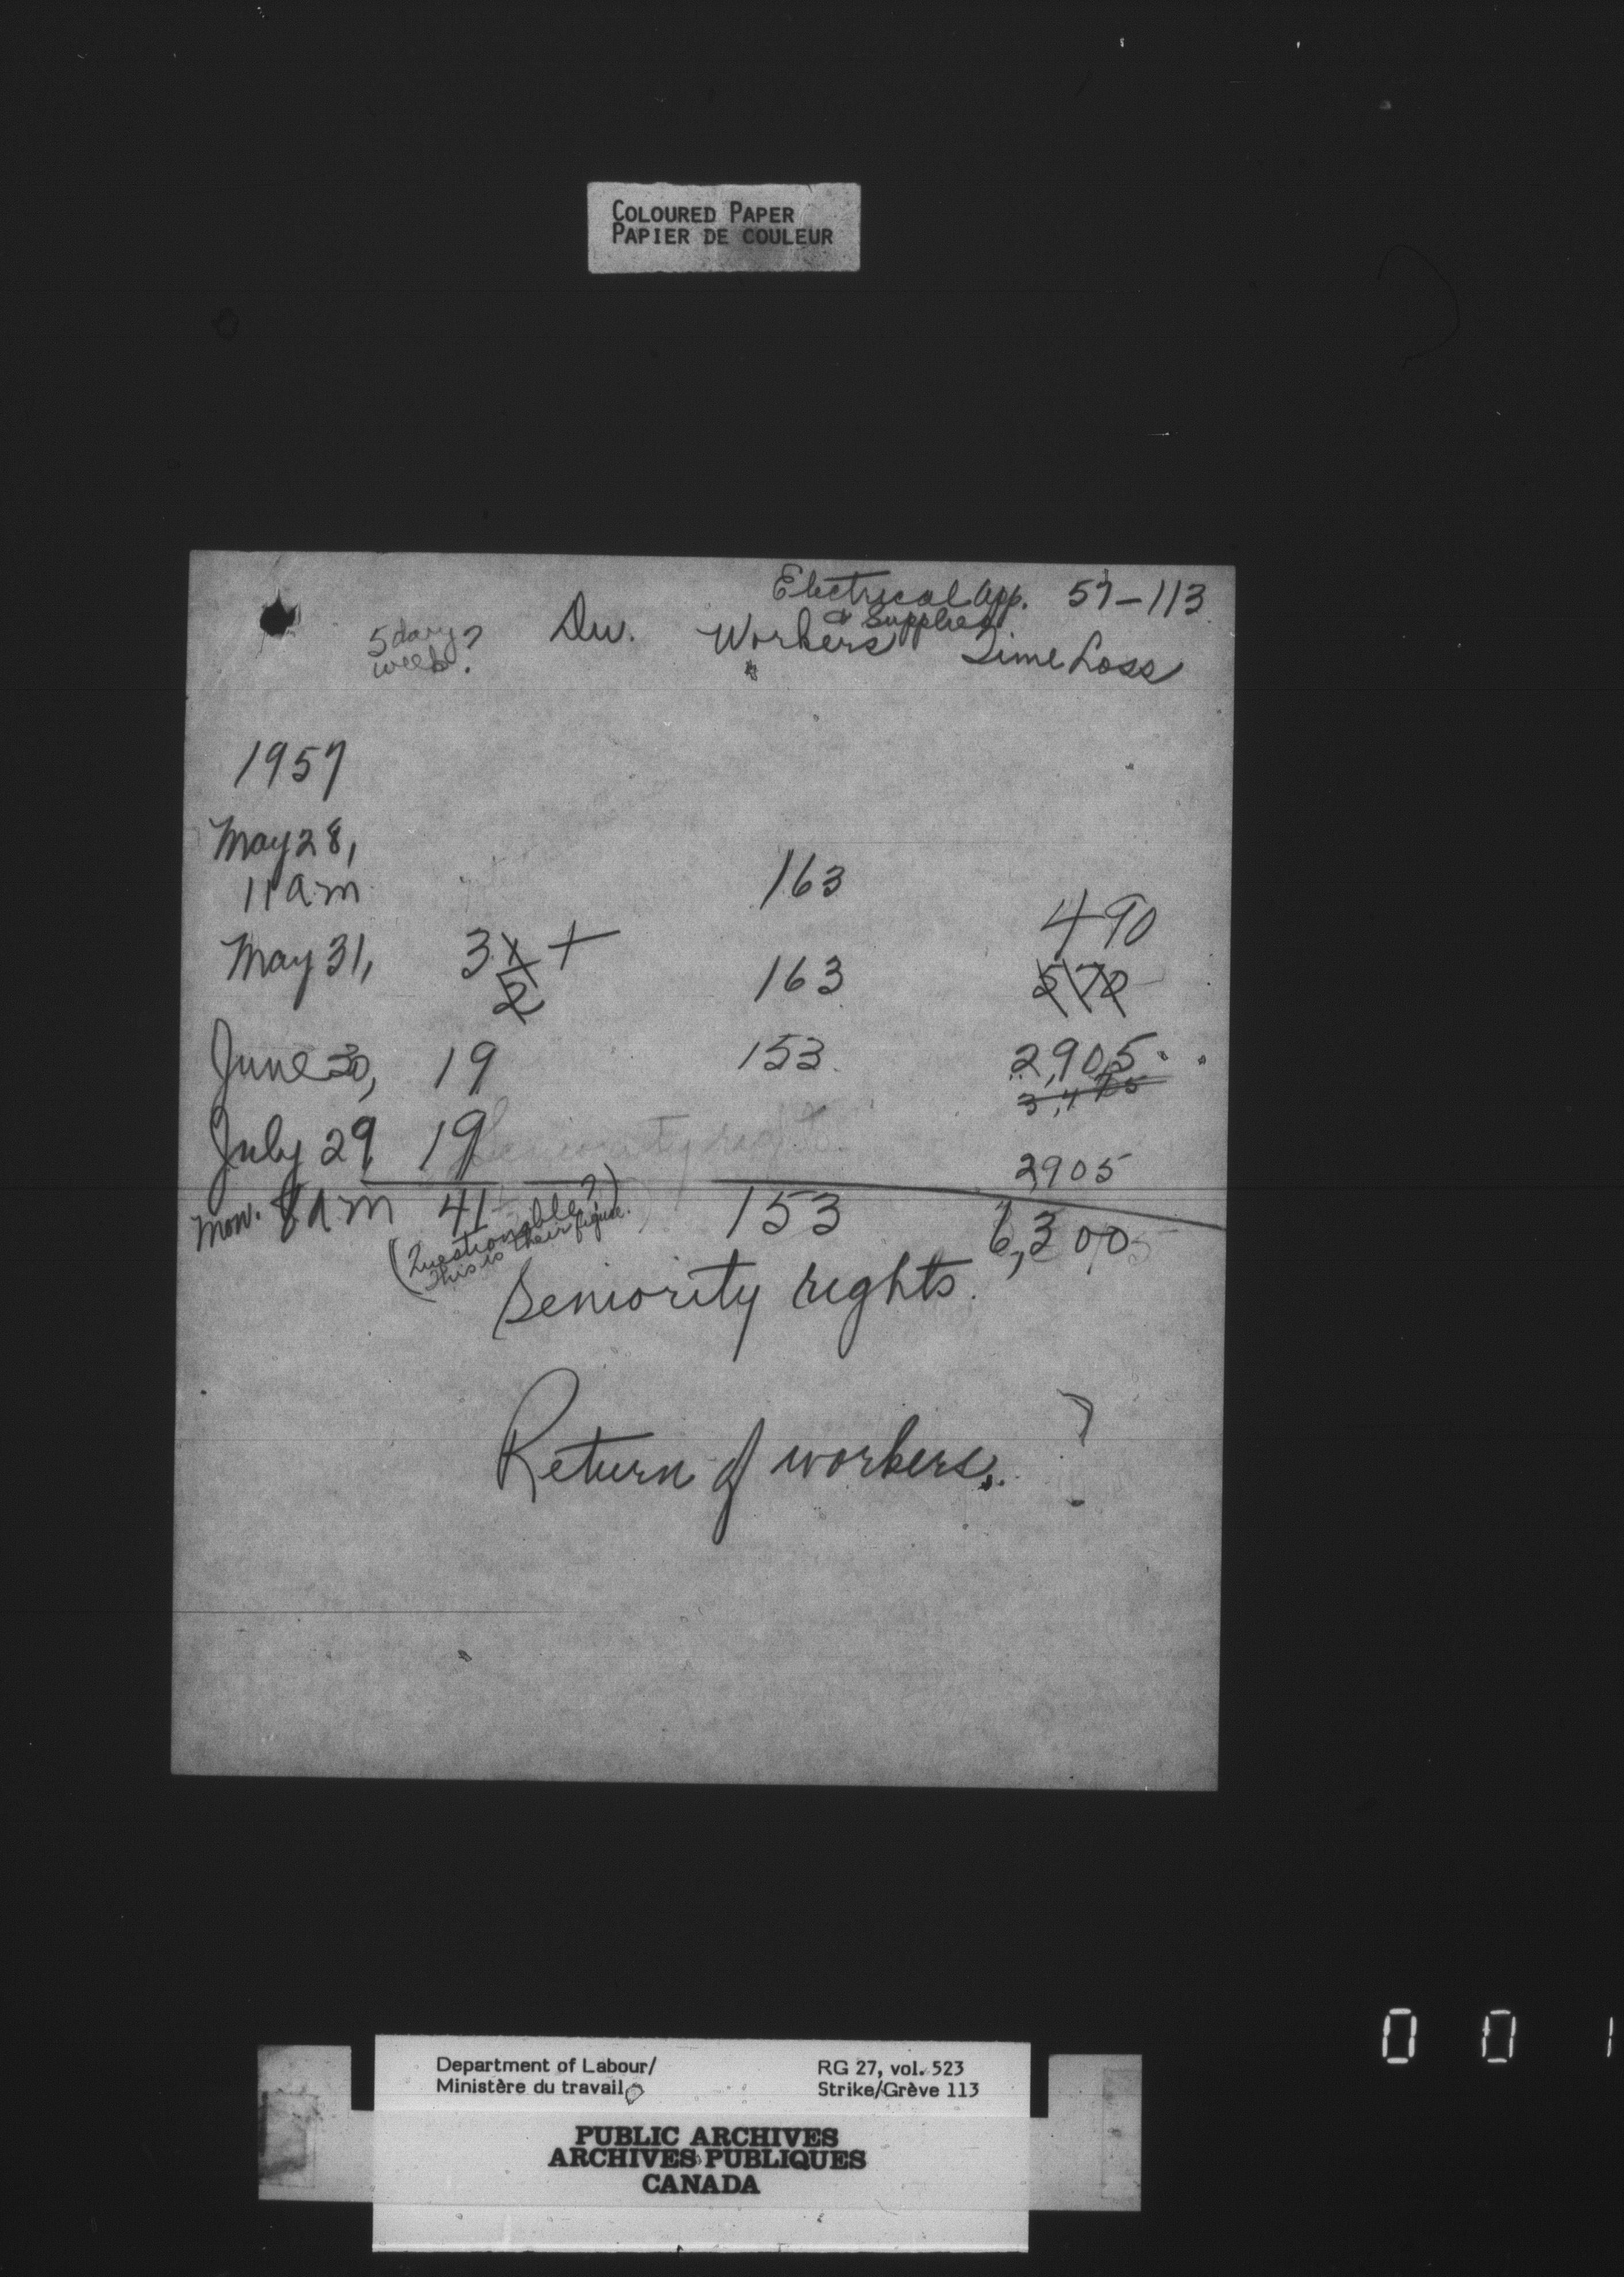 COLOURED PAPER
PAPIER DE COULEUR
Electrical App. 57-113
& Supplies
5 day
week?
Dw. Workers Time Loss
1957
May 28,
11 a.m. 163
490
May 31, 3 1/2 + 163 572
June 30, 19 153 2,905
July 29 19 Seniority rights 2905
Mon. 8 a m 41 153 6,300
(Questionable?
This is their figure.)
Seniority rights.
Return of workers. ?
Department of Labour/ RG 27, vol. 523
Ministère du travail Strike/Grève 113
PUBLIC ARCHIVES
ARCHIVES PUBLIQUES
CANADA
0 0 1